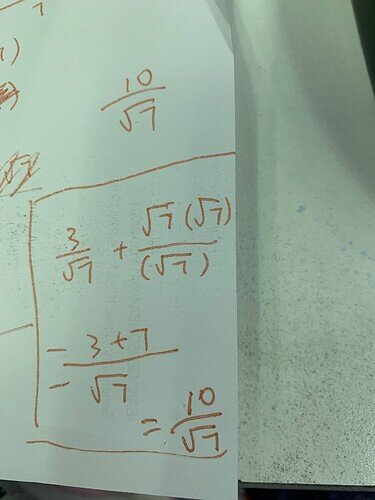 7
10/√7
3/√7 + √7(√7)/(√7)
= 3+7/√7
= 10/√7